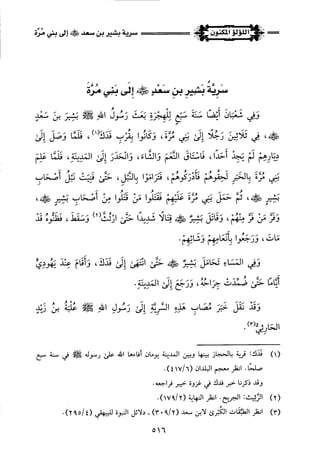 اللؤلؤ المكنون
سرية بشير بن سعد ﷺ إلى بني مُرَّة
سَرِيَّةُ بَشِيرِ بنِ سَعْدٍ ﷺ إِلَى بَنِي مُرَّةَ
وَفِي شَعْبَانَ أَيْضًا سَنَةَ سَبْعٍ لِلْهِجْرَةِ بَعَثَ رَسُولُ اللهِ ﷺ بَشِيرَ بنَ سَعْدٍ
فِي ثَلَاثِينَ رَجُلًا إِلَى بَنِي مُرَّةَ، وَكَانُوا بِقُرْبِ فَدَكَ(١)، فَلَمَّا وَصَلَ إِلَى
دِيَارِهِمْ لَمْ يَجِدْ أَحَدًا، فَاسْتَاقَ النَّعَمَ وَالشَّاءَ، وَانْحَدَرَ إِلَى المَدِينَةِ، فَلَمَّا عَلِمَ
بَنُو مُرَّةَ بِالخَبَرِ لَحِقُوهُمْ فَأَدْرَكُوهُمْ، فَتَرَامَوْا بِالنَّبْلِ، حَتَّى فَنِيَتْ نَبْلُ أَصْحَابِ
بَشِيرٍ ﷺ، ثُمَّ حَمَلَ بَنُو مُرَّةَ عَلَيْهِمْ فَقَتَلُوا مَنْ قَتَلُوا مِنْ أَصْحَابِ بَشِيرٍ ﷺ،
وَفَرَّ مَنْ فَرَّ مِنْهُمْ، وَقَاتَلَ بَشِيرٌ ﷺ قِتَالًا شَدِيدًا حَتَّى ارْتُثَّ(٢) وَسَقَطَ، فَظَنُّوهُ قَدْ
مَاتَ، وَرَجَعُوا بِأَنْعَامِهِمْ وَشَائِهِمْ.
وَفِي المَسَاءِ تَحَامَلَ بَشِيرٌ ﷺ حَتَّى انْتَهَى إِلَى فَدَكَ، وَأَقَامَ عِنْدَ يَهُودِيٍّ
أَيَّامًا حَتَّى ضُمِّدَتْ جِرَاحُهُ، وَرَجَعَ إِلَى المَدِينَةِ.
وَقَدْ نَقَلَ خَبَرَ مُصَابِ هَذِهِ السَّرِيَّةِ إِلَى رَسُولِ اللهِ ﷺ عُلْبَةُ بنُ زَيْدٍ
الحَارِثِيُّ(٣).
(١) فَدَكُ: قرية بالحجاز بينها وبين المدينة يومان أفاءها الله على رسوله ﷺ في سنة سبع
صلحًا. انظر معجم البلدان (٤١٧/٦).
وقد ذكرنا خبر فدك في غزوة خيبر فراجعه.
(٢) الرَّثِيثُ: الجريح. انظر النهاية (١٧٩/٢).
(٣) انظر الطَّبَقَات الكُبْرى لابن سعد (٣٠٩/٢) - دلائل النبوة للبيهقي (٢٩٥/٤).
٥١٦